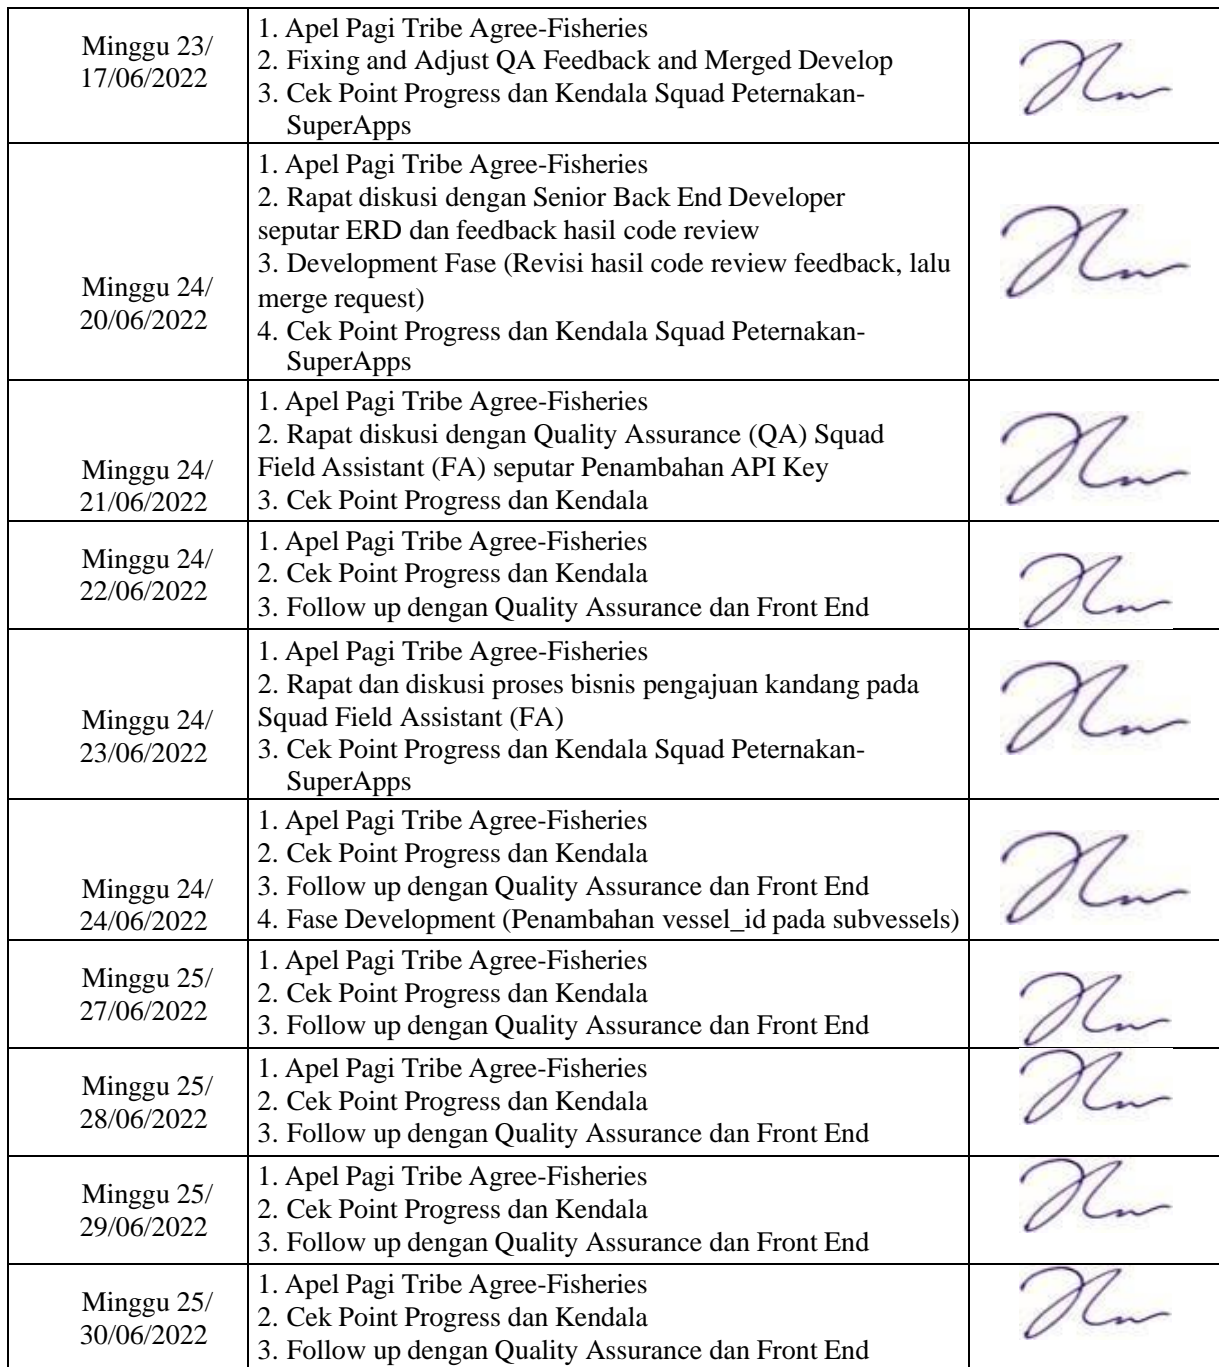 Minggu 23/
17/06/2022
1. Apel Pagi Tribe Agree-Fisheries
2. Fixing and Adjust QA Feedback and Merged Develop
3. Cek Point Progress dan Kendala Squad Peternakan-
SuperApps
Minggu 24/
20/06/2022
1. Apel Pagi Tribe Agree-Fisheries
2. Rapat diskusi dengan Senior Back End Developer
seputar ERD dan feedback hasil code review
3. Development Fase (Revisi hasil code review feedback, lalu
merge request)
4. Cek Point Progress dan Kendala Squad Peternakan-
SuperApps
Minggu 24/
21/06/2022
1. Apel Pagi Tribe Agree-Fisheries
2. Rapat diskusi dengan Quality Assurance (QA) Squad
Field Assistant (FA) seputar Penambahan API Key
3. Cek Point Progress dan Kendala
Minggu 24/
22/06/2022
1. Apel Pagi Tribe Agree-Fisheries
2. Cek Point Progress dan Kendala
3. Follow up dengan Quality Assurance dan Front End
Minggu 24/
23/06/2022
1. Apel Pagi Tribe Agree-Fisheries
2. Rapat dan diskusi proses bisnis pengajuan kandang pada
Squad Field Assistant (FA)
3. Cek Point Progress dan Kendala Squad Peternakan-
SuperApps
Minggu 24/
24/06/2022
1. Apel Pagi Tribe Agree-Fisheries
2. Cek Point Progress dan Kendala
3. Follow up dengan Quality Assurance dan Front End
4. Fase Development (Penambahan vessel_id pada subvessels)
Minggu 25/
27/06/2022
1. Apel Pagi Tribe Agree-Fisheries
2. Cek Point Progress dan Kendala
3. Follow up dengan Quality Assurance dan Front End
Minggu 25/
28/06/2022
1. Apel Pagi Tribe Agree-Fisheries
2. Cek Point Progress dan Kendala
3. Follow up dengan Quality Assurance dan Front End
Minggu 25/
29/06/2022
1. Apel Pagi Tribe Agree-Fisheries
2. Cek Point Progress dan Kendala
3. Follow up dengan Quality Assurance dan Front End
Minggu 25/
30/06/2022
1. Apel Pagi Tribe Agree-Fisheries
2. Cek Point Progress dan Kendala
3. Follow up dengan Quality Assurance dan Front End